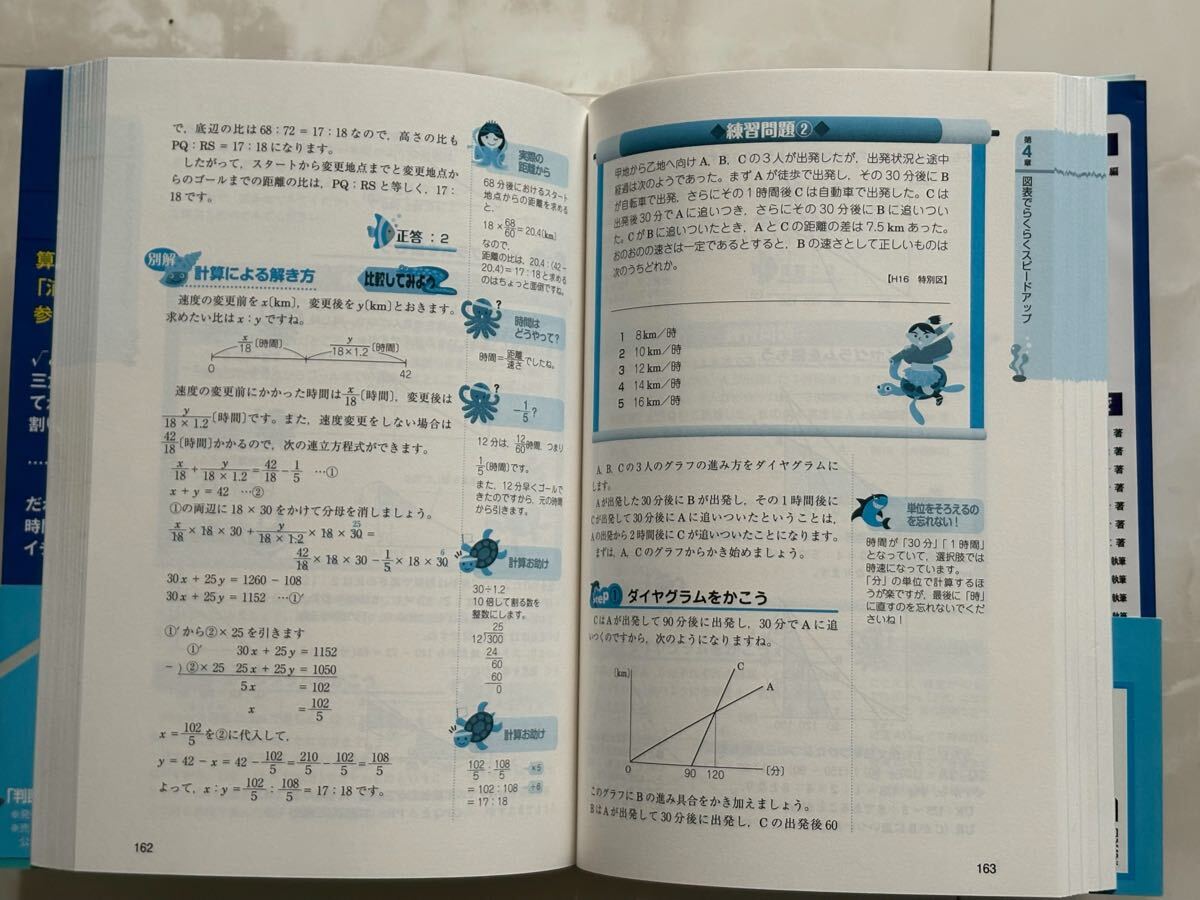 で，底辺の比は 68：72 = 17：18 なので，高さの比も
PQ：RS = 17：18 になります。
したがって，スタートから変更地点までと変更地点か
らのゴールまでの距離の比は，PQ：RS と等しく，17：
18 です。
正答：2
別解 計算による解き方
比較してみよう
速度の変更前を x〔km〕，変更後を y〔km〕とおきます。
求めたい比は x：y ですね。
x/18〔時間〕 y/(18×1.2)〔時間〕
0 42
速度の変更前にかかった時間は x/18〔時間〕，変更後は
y/(18×1.2)〔時間〕です。また，速度変更をしない場合は
42/18〔時間〕かかるので，次の連立方程式ができます。
x/18 + y/(18×1.2) = 42/18 − 1/5 …①
x + y = 42 …②
①の両辺に 18 × 30 をかけて分母を消しましょう。
x/18 × 18 × 30 + y/(18×1.2) × 18 × 30 =
25
42/18 × 18 × 30 − 1/5 × 18 × 30
6
30x + 25y = 1260 − 108
30x + 25y = 1152 …①′
①′から②× 25 を引きます
①′ 30x + 25y = 1152
−）②× 25 25x + 25y = 1050
5x = 102
x = 102/5
x = 102/5 を②に代入して，
y = 42 − x = 42 − 102/5 = 210/5 − 102/5 = 108/5
よって，x：y = 102/5：108/5 = 17：18 です。
162
実際の
距離から
68 分後におけるスタート
地点からの距離を求める
と，
18 × 68/60 = 20.4〔km〕
なので，
距離の比は，20.4：(42 −
20.4) = 17：18 と求める
のはちょっと面倒ですね。
時間は
どうやって？
時間＝距離/速さ でしたね。
−1/5？
12 分は，12/60 時間，つまり
1/5〔時間〕です。
また，12 分早くゴールで
きたのですから，元の時間
から引きます。
計算お助け
30÷1.2
10 倍して割る数を
整数にします。
25
12)300
24
60
60
0
計算お助け
102/5：108/5 ×5
= 102：108 ÷6
= 17：18
練習問題②
甲地から乙地へ向け A，B，C の 3 人が出発したが，出発状況と途中
経過は次のようであった。まず A が徒歩で出発し，その 30 分後に B
が自転車で出発，さらにその 1 時間後 C は自動車で出発した。C は
出発後 30 分で A に追いつき，さらにその 30 分後に B に追いつい
た。C が B に追いついたとき，A と C の距離の差は 7.5 km あった。
おのおのの速さは一定であるとすると，B の速さとして正しいものは
次のうちどれか。
【H16 特別区】
1 8 km／時
2 10 km／時
3 12 km／時
4 14 km／時
5 16 km／時
第4章 図表でらくらくスピードアップ
A，B，C の 3 人のグラフの進み方をダイヤグラムに
します。
A が出発した 30 分後に B が出発し，その 1 時間後に
C が出発して 30 分後に A に追いついたということは，
A の出発から 2 時間後に C が追いついたことになります。
まずは，A，C のグラフからかき始めましょう。
Step① ダイヤグラムをかこう
C は A が出発して 90 分後に出発し，30 分で A に追
いつくのですから，次のようになりますね。
〔km〕 C
A
0 90 120 〔分〕
このグラフに B の進み具合をかき加えましょう。
B は A が出発して 30 分後に出発し，C の出発後 60
単位をそろえるの
を忘れない！
時間が「30 分」「1 時間」
となっていて，選択肢では
時速になっています。
「分」の単位で計算するほ
うが楽ですが，最後に「時」
に直すのを忘れないでくだ
さいね！
163
編
著
著
著
著
著
執筆
執筆